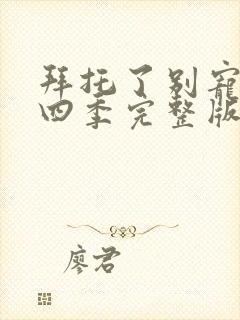 拜托了别宠
四季完整版
廖君